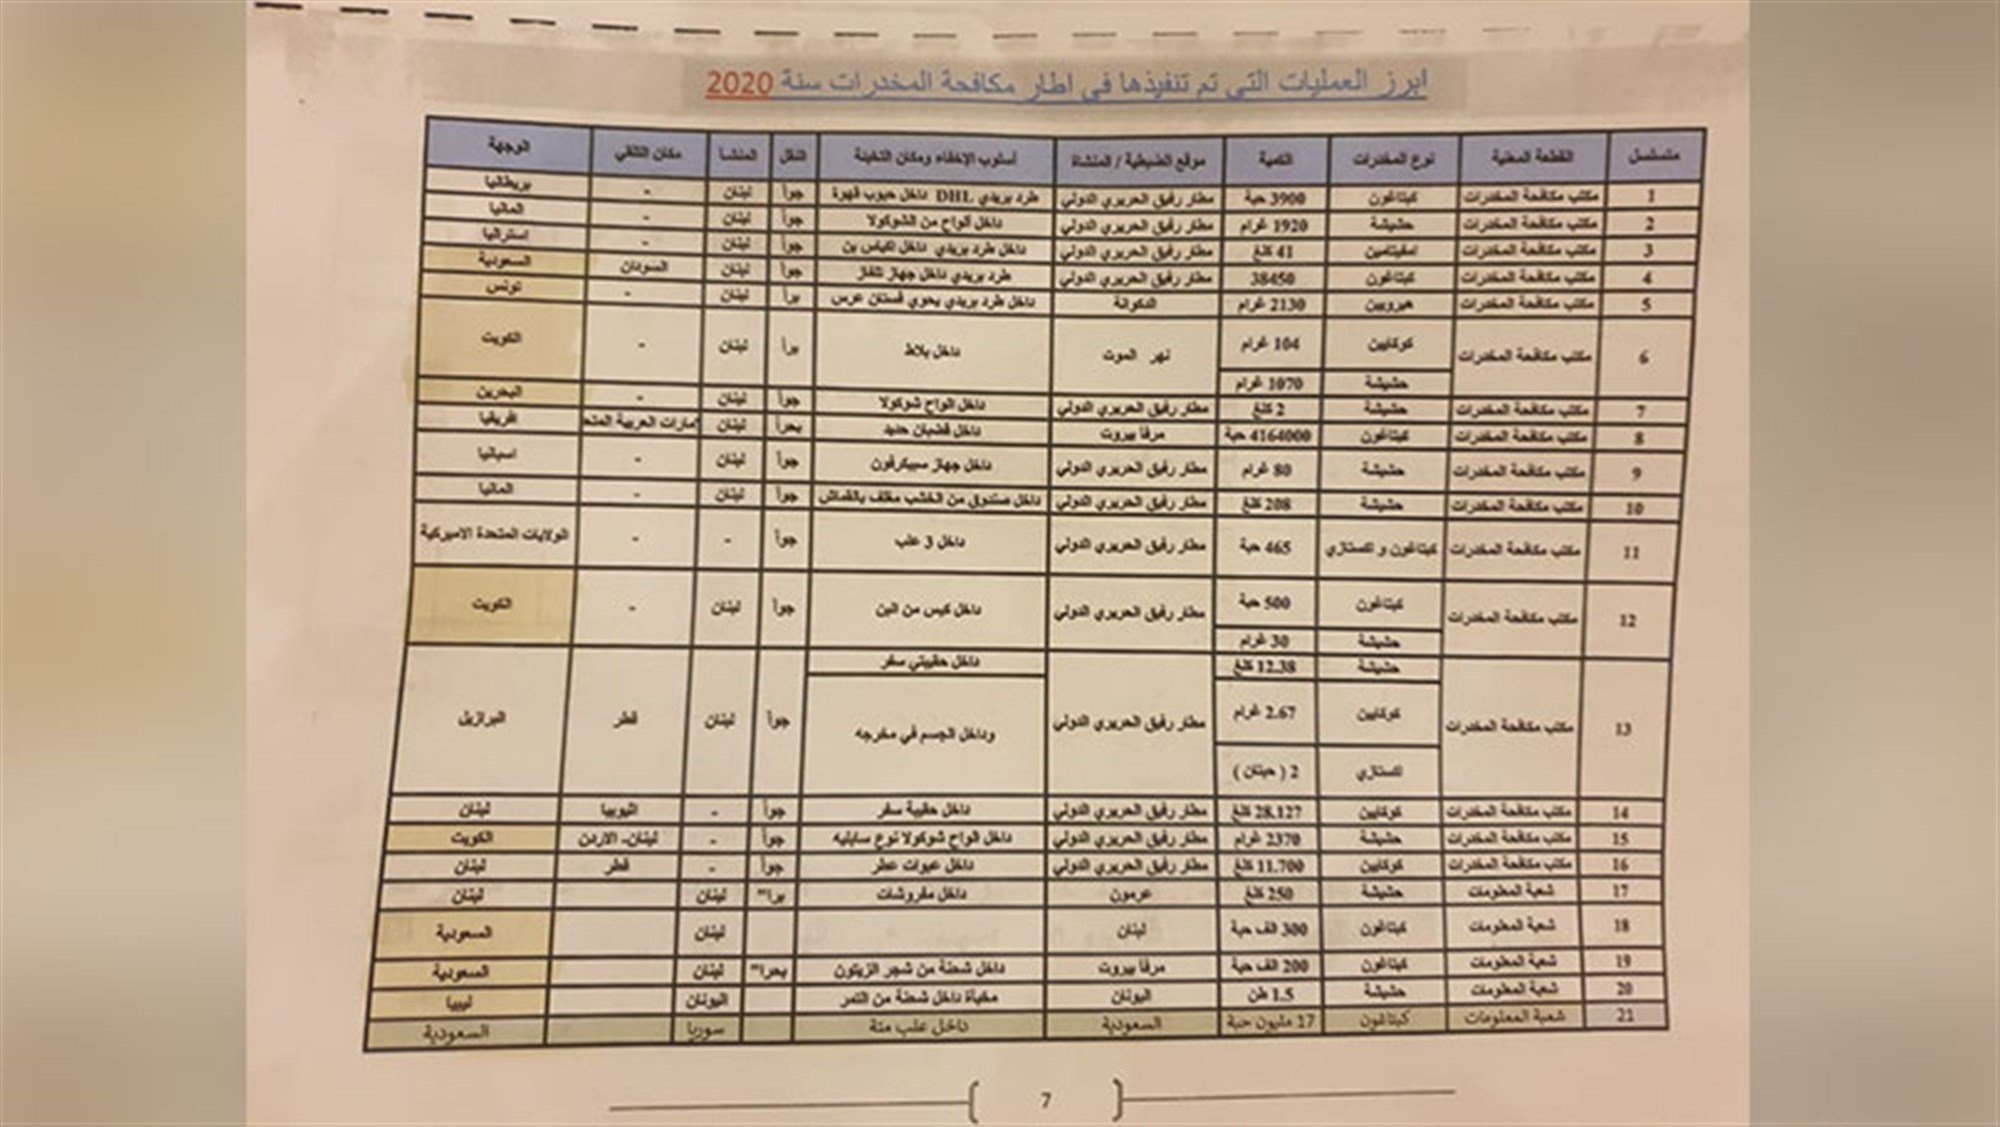 ابرز العمليات التي تم تنفيذها في اطار مكافحة المخدرات سنة 2020
متسلسل القطعة المعنية نوع المخدرات الكمية موقع الضبطية / المنشأة أسلوب الإخفاء ومكان التخبئة النقل المنشأ مكان التلقي الوجهة
1 مكتب مكافحة المخدرات كبتاغون 3900 حبة مطار رفيق الحريري الدولي طرد بريدي DHL داخل حبوب قهوة جواً لبنان - بريطانيا
2 مكتب مكافحة المخدرات حشيشة 1920 غرام مطار رفيق الحريري الدولي داخل ألواح من الشوكولا جواً لبنان - المانيا
3 مكتب مكافحة المخدرات امفيتامين 41 كلغ مطار رفيق الحريري الدولي داخل طرد بريدي داخل اكياس بن جواً لبنان - استراليا
4 مكتب مكافحة المخدرات كبتاغون 38450 مطار رفيق الحريري الدولي طرد بريدي داخل جهاز تلفاز جواً لبنان السودان السعودية
5 مكتب مكافحة المخدرات هيرويين 2130 غرام الدكوانة داخل طرد بريدي يحوي فستان عرس براً لبنان - تونس
6 مكتب مكافحة المخدرات كوكايين 104 غرام نهر الموت داخل بلاط براً لبنان - الكويت
حشيشة 1070 غرام
7 مكتب مكافحة المخدرات حشيشة 2 كلغ مطار رفيق الحريري الدولي داخل الواح شوكولا جواً لبنان - البحرين
8 مكتب مكافحة المخدرات كبتاغون 4164000 حبة مرفأ بيروت داخل قضبان حديد بحراً لبنان مارات العربية المتح افريقيا
9 مكتب مكافحة المخدرات حشيشة 80 غرام مطار رفيق الحريري الدولي داخل جهاز سبيكرفون جواً لبنان - اسبانيا
10 مكتب مكافحة المخدرات حشيشة 208 كلغ مطار رفيق الحريري الدولي داخل صندوق من الخشب مغلف بالقماش جواً لبنان - المانيا
11 مكتب مكافحة المخدرات كبتاغون و اكستازي 465 حبة مطار رفيق الحريري الدولي داخل 3 علب جواً - - الولايات المتحدة الاميركية
12 مكتب مكافحة المخدرات كبتاغون 500 حبة مطار رفيق الحريري الدولي داخل كيس من البن جواً لبنان - الكويت
حشيشة 30 غرام
13 مكتب مكافحة المخدرات حشيشة 12.38 كلغ مطار رفيق الحريري الدولي داخل حقيبتي سفر جواً لبنان قطر البرازيل
كوكايين 2.67 غرام وداخل الجسم في مخرجه
اكستازي 2 ( حبتان )
14 مكتب مكافحة المخدرات كوكايين 28.127 كلغ مطار رفيق الحريري الدولي داخل حقيبة سفر جواً - اثيوبيا لبنان
15 مكتب مكافحة المخدرات حشيشة 2370 غرام مطار رفيق الحريري الدولي داخل الواح شوكولا نوع سابليه جواً - لبنان- الاردن الكويت
16 مكتب مكافحة المخدرات كوكايين 11.700 كلغ مطار رفيق الحريري الدولي داخل عبوات عطر جواً - قطر لبنان
17 شعبة المعلومات حشيشة 250 كلغ عرمون داخل مفروشات برا" لبنان لبنان
18 شعبة المعلومات كبتاغون 300 الف حبة لبنان لبنان السعودية
19 شعبة المعلومات كبتاغون 200 الف حبة مرفأ بيروت داخل شحنة من شجر الزيتون بحرا" لبنان السعودية
20 شعبة المعلومات حشيشة 1.5 طن اليونان مخبأة داخل شحنة من التمر اليونان ليبيا
21 شعبة المعلومات كبتاغون 17 مليون حبة السعودية داخل علب متة سوريا السعودية
7